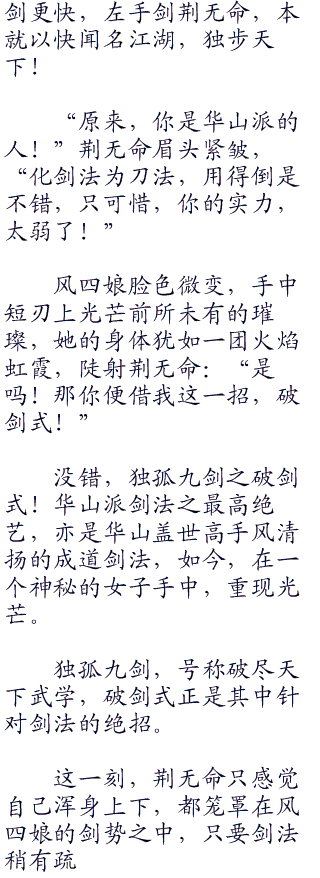 剑更快，左手剑荆无命，本
就以快闻名江湖，独步天
下！
“原来，你是华山派的
人！”荆无命眉头紧皱，
“化剑法为刀法，用得倒是
不错，只可惜，你的实力，
太弱了！”
风四娘脸色微变，手中
短刃上光芒前所未有的璀
璨，她的身体犹如一团火焰
虹霞，陡射荆无命：“是
吗！那你便借我这一招，破
剑式！”
没错，独孤九剑之破剑
式！华山派剑法之最高绝
艺，亦是华山盖世高手风清
扬的成道剑法，如今，在一
个神秘的女子手中，重现光
芒。
独孤九剑，号称破尽天
下武学，破剑式正是其中针
对剑法的绝招。
这一刻，荆无命只感觉
自己浑身上下，都笼罩在风
四娘的剑势之中，只要剑法
稍有疏